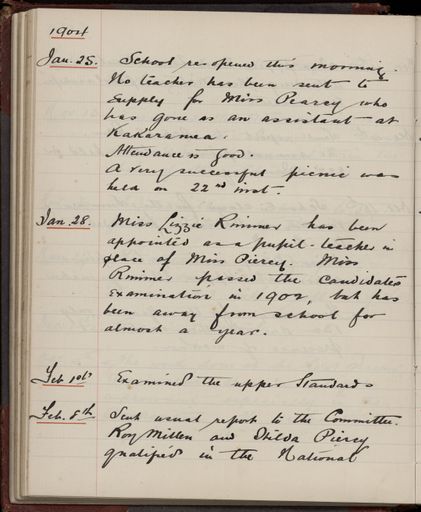 1904
Jan. 25. School re-opened this morning.
No teacher has been sent to
supply for Miss Pearcy who
has gone as an assistant at
Kakaramea.
Attendance is good.
A very successful picnic was
held on 22nd inst.
Jan. 28. Miss Lizzie Rimmer has been
appointed as a pupil-teacher in
place of Miss Piercy. Miss
Rimmer passed the Candidates
Examination in 1902, but has
been away from school for
almost a year.
Feb 1st Examined the upper Standards
Feb. 8th. Sent usual report to the Committee.
Roy Millen and Hilda Piercy
qualified in the National